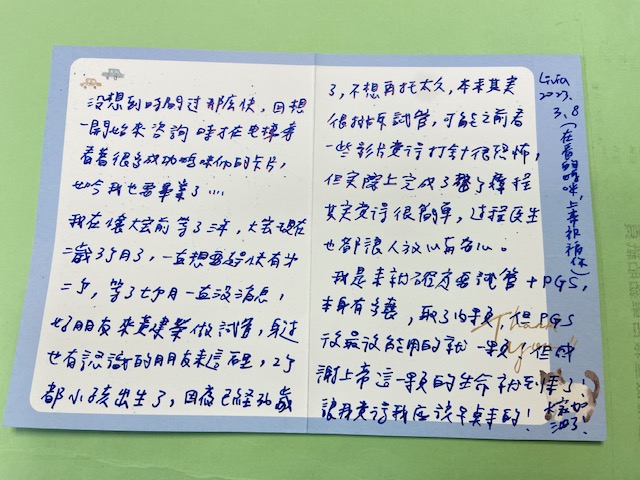 沒想到時間過那麼快，回想
一開始來咨詢時才在電梯旁
看著很多成功媽咪們的卡片，
如今我也要畢業了....
我在懷大寶前等了三年，大寶現在
二歲3個月了，一直想要趕快有廿
二寶，等了七個月一直沒消息，
好朋友來黃建榮做試管，身邊
也有認識的朋友來這裡，2個
都小孩出生了，因為已經36歲
了，不想再托太久，本來其實
很排斥試管，可能之前看
一些影片覺得打針很恐怖，
但實際上完成了整個療程
其實覺得很簡單，過程醫生
也都很人放心有耐心。
我是來就確定要試管+PGS，
本身有多囊，取了 顆，但PGS
後最後能用的就一顆，但感
謝上帝這一顆的生命就到懷了，
讓我覺得我應該早點來的！大家加
油了！
Thank
you
Livia
2023.
3.8
(在看的媽咪，上帝祝福你)